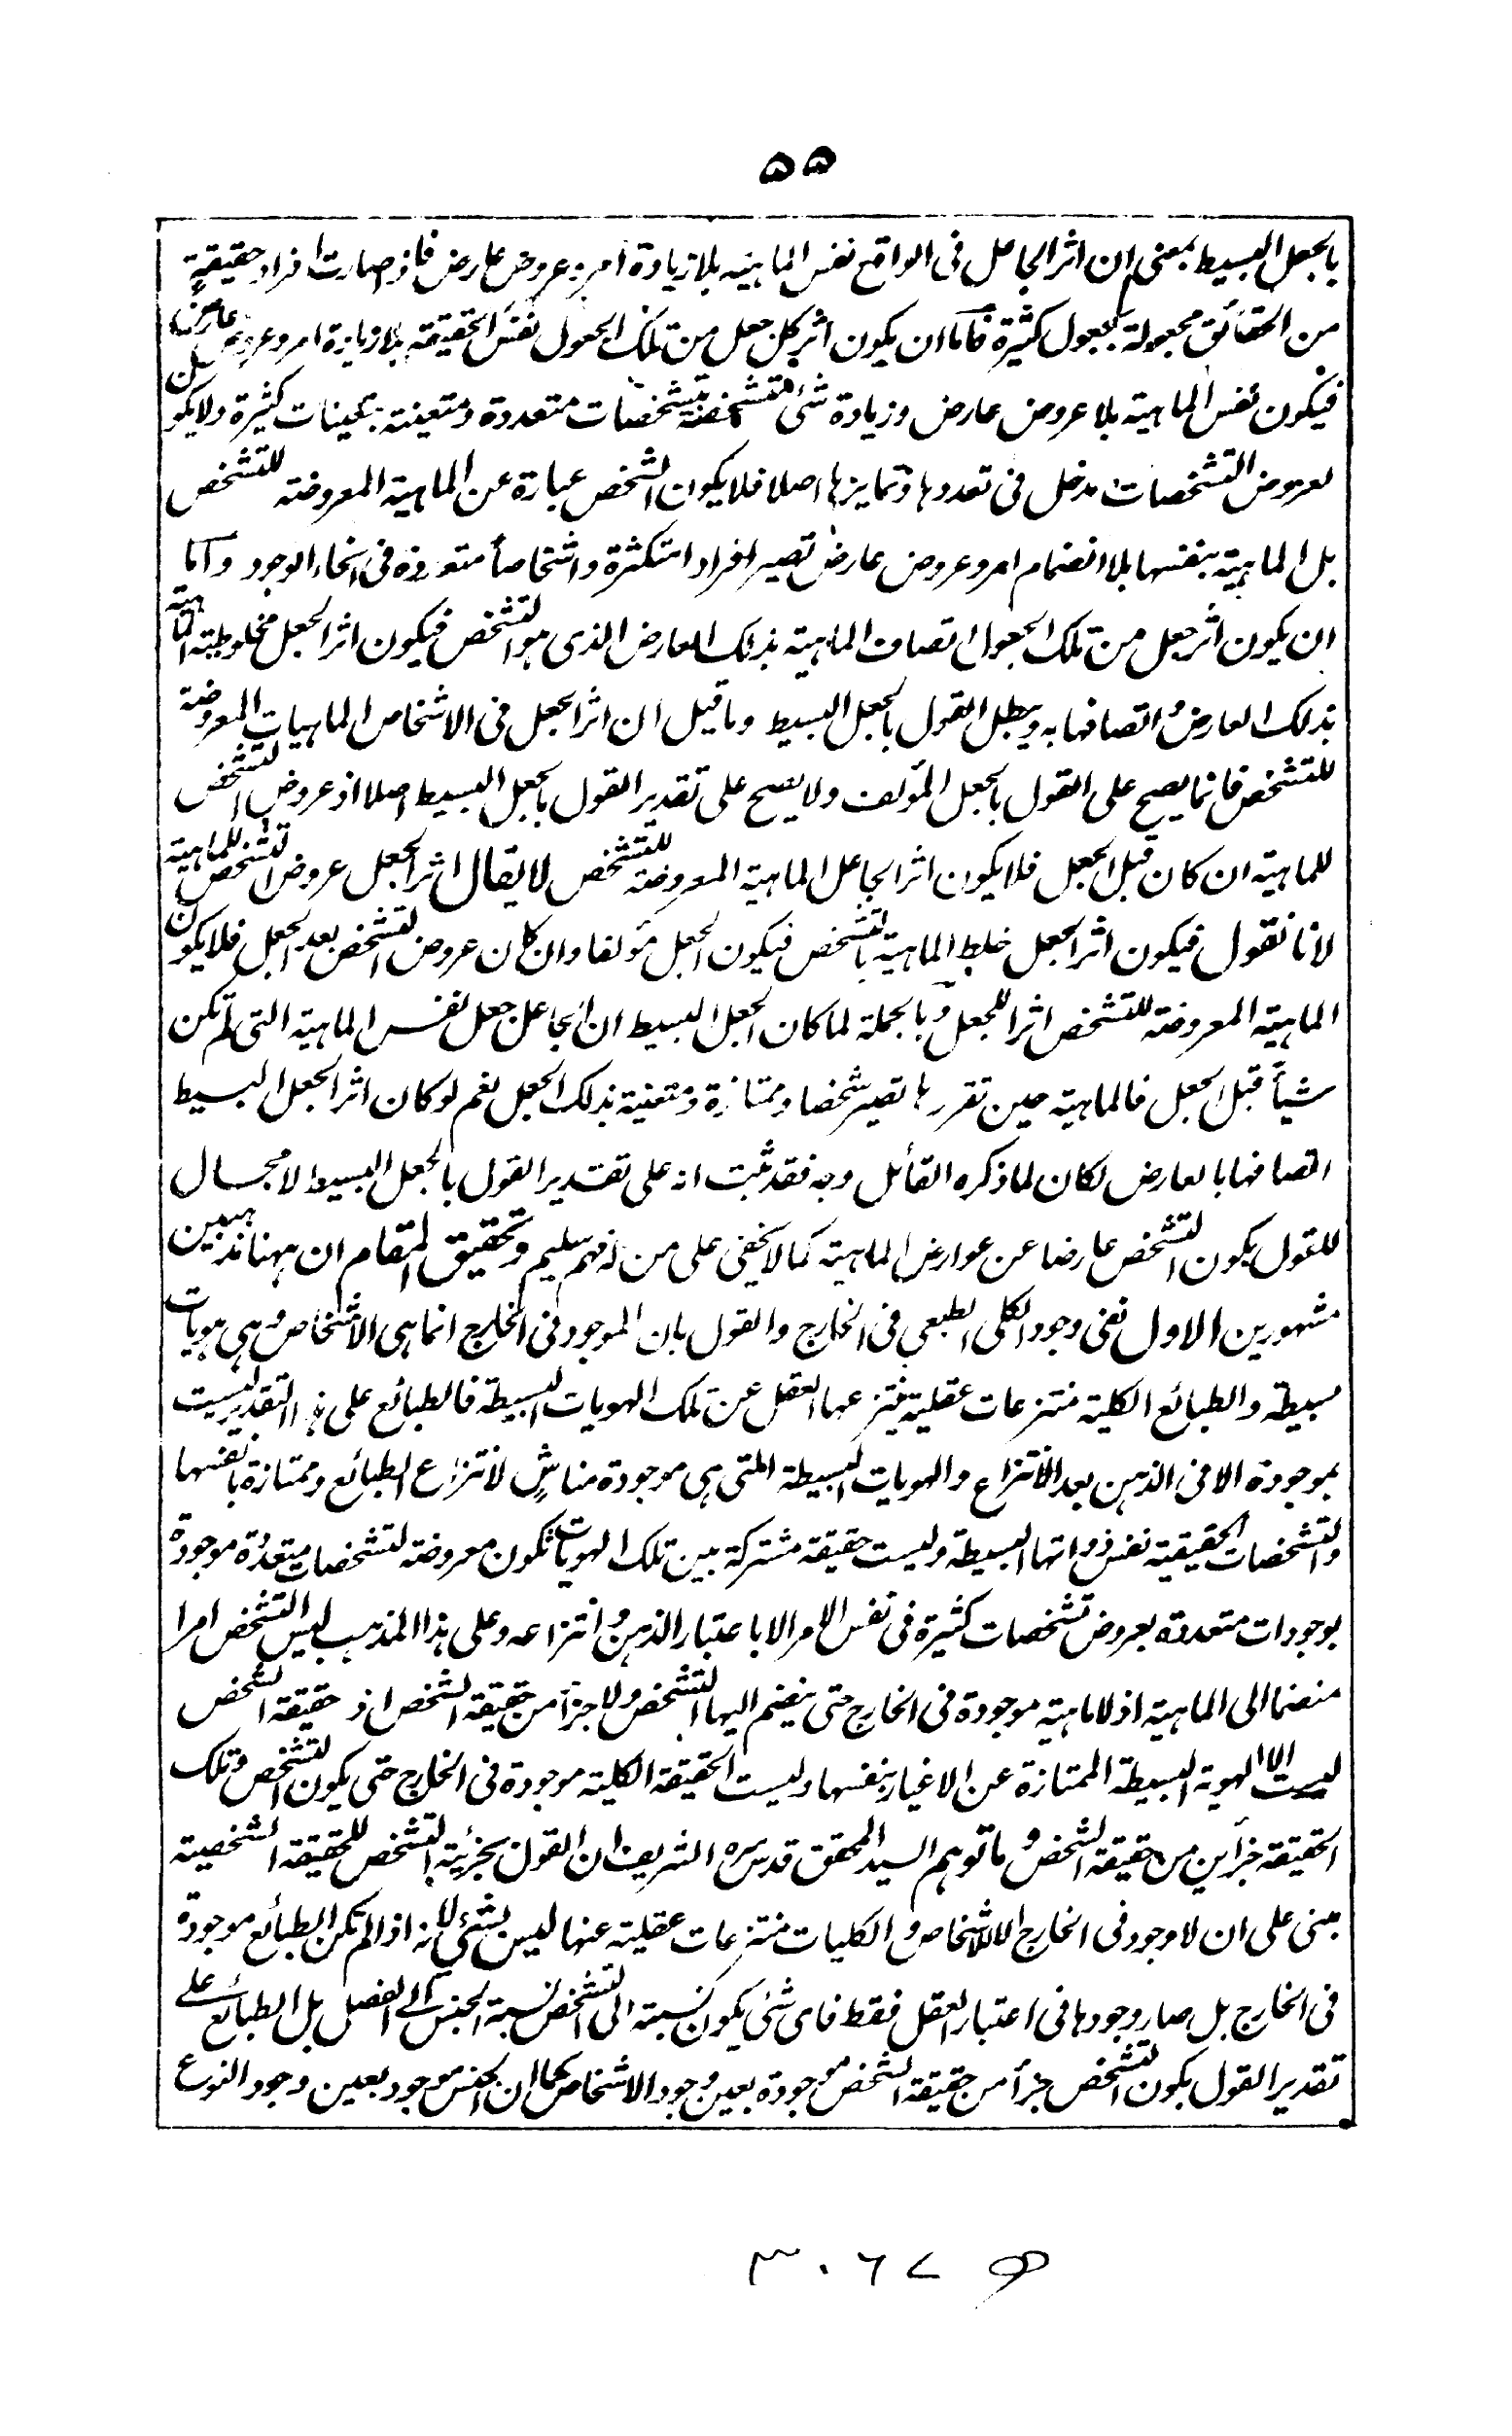 ۵۵
بالجعل البسيط بمعنى ان اثر الجاعل فى الواقع نفس الماهية بلا زيادة امر وعروض عارض فاذ صارت افراد حقيقة
من الحقائق مجعولة بجعول كثيرة فاما ان يكون اثر كل جعل من تلك الجعول نفس الحقيقة بلا زيادة امر وعروض عارض
فيكون نفس الماهية بلا عروض عارض وزيادة شئ متشخصة بتشخصات متعددة ومتعينة بتعينات كثيرة ولا يكون
لعروض التشخصات مدخل فى تعددها وتمايزها اصلا فلا يكون الشخص عبارة عن الماهية المعروضة للتشخص
بل الماهية بنفسها بلا انضمام امر وعروض عارض تصير افرادا متكثرة واشخاصا متعددة فى انحاء الوجود واما
ان يكون اثر جعل من تلك الجعول اتصاف الماهية بذلك العارض الذى هو التشخص فيكون اثر الجعل مخلوطية الماهية
بذلك العارض واتصافها به ويبطل القول بالجعل البسيط وما قيل ان اثر الجعل فى الاشخاص الماهيات المعروضة
للتشخص فانما يصح على القول بالجعل المؤلف ولا يصح على تقدير القول بالجعل البسيط اصلا اذ عروض التشخص
للماهية ان كان قبل الجعل فلا يكون اثر الجاعل الماهية المعروضة للتشخص لا يقال اثر الجعل عروض التشخص للماهية
لانا نقول فيكون اثر الجعل خلط الماهية بالتشخص فيكون الجعل مؤلفا وان كان عروض التشخص بعد الجعل فلا يكون
الماهية المعروضة للتشخص اثرا للجعل وبالجملة لما كان الجعل البسيط ان الجاعل جعل نفس الماهية التى لم تكن
شيأ قبل الجعل فالماهية حين تقررها تصير شخصا وممتازة ومتعينة بذلك الجعل نعم لو كان اثر الجعل البسيط
اتصافها بالعارض لكان لما ذكره القائل وجه فقد ثبت انه على تقدير القول بالجعل البسيط لا مجال
للقول بكون التشخص عارضا عن عوارض الماهية كما لا يخفى على من له فهم سليم وتحقيق المقام ان ههنا مذهبين
مشهورين الاول نفى وجود الكلى الطبعى فى الخارج والقول بان الموجود فى الخارج انما هى الاشخاص وهى هويات
بسيطة والطبائع الكلية منتزعات عقلية ينتزعها العقل عن تلك الهويات البسيطة فالطبائع على هذا التقدير ليست
بموجودة الا فى الذهن بعد الانتزاع والهويات البسيطة التى هى موجودة مناشٍ لانتزاع الطبائع وممتازة بانفسها
والتشخصات الحقيقية نفس ذواتها البسيطة وليست حقيقة مشتركة بين تلك الهويات تكون معروضة لتشخصات متعددة موجودة
بوجودات متعددة بعروض تشخصات كثيرة فى نفس الامر الا باعتبار الذهن وانتزاعه وعلى هذا المذهب ليس التشخص امرا
منضما الى الماهية اذ لا ماهية موجودة فى الخارج حتى ينضم اليها التشخص ولا جزأ من حقيقة الشخص اذ حقيقة الشخص
ليست الا الهوية البسيطة الممتازة عن الاغيار بنفسها وليست الحقيقة الكلية موجودة فى الخارج حتى يكون التشخص وتلك
الحقيقة جزأين من حقيقة الشخص وما توهم السيد المحقق قدس سره الشريف ان القول بجزئية التشخص للحقيقة الشخصية
مبنى على ان لا وجود فى الخارج الا للاشخاص والكليات منتزعات عقلية عنها ليس بشئ لانه اذا لم تكن الطبائع موجودة
فى الخارج بل صار وجودها فى اعتبار العقل فقط فاى شئ يكون نسبة الى التشخص نسبة الجنس الى الفصل بل الطبائع على
تقدير القول بكون التشخص جزأ من حقيقة الشخص موجودة بعين وجود الاشخاص كما ان الجنس موجود بعين وجود النوع
۳۰۶۷